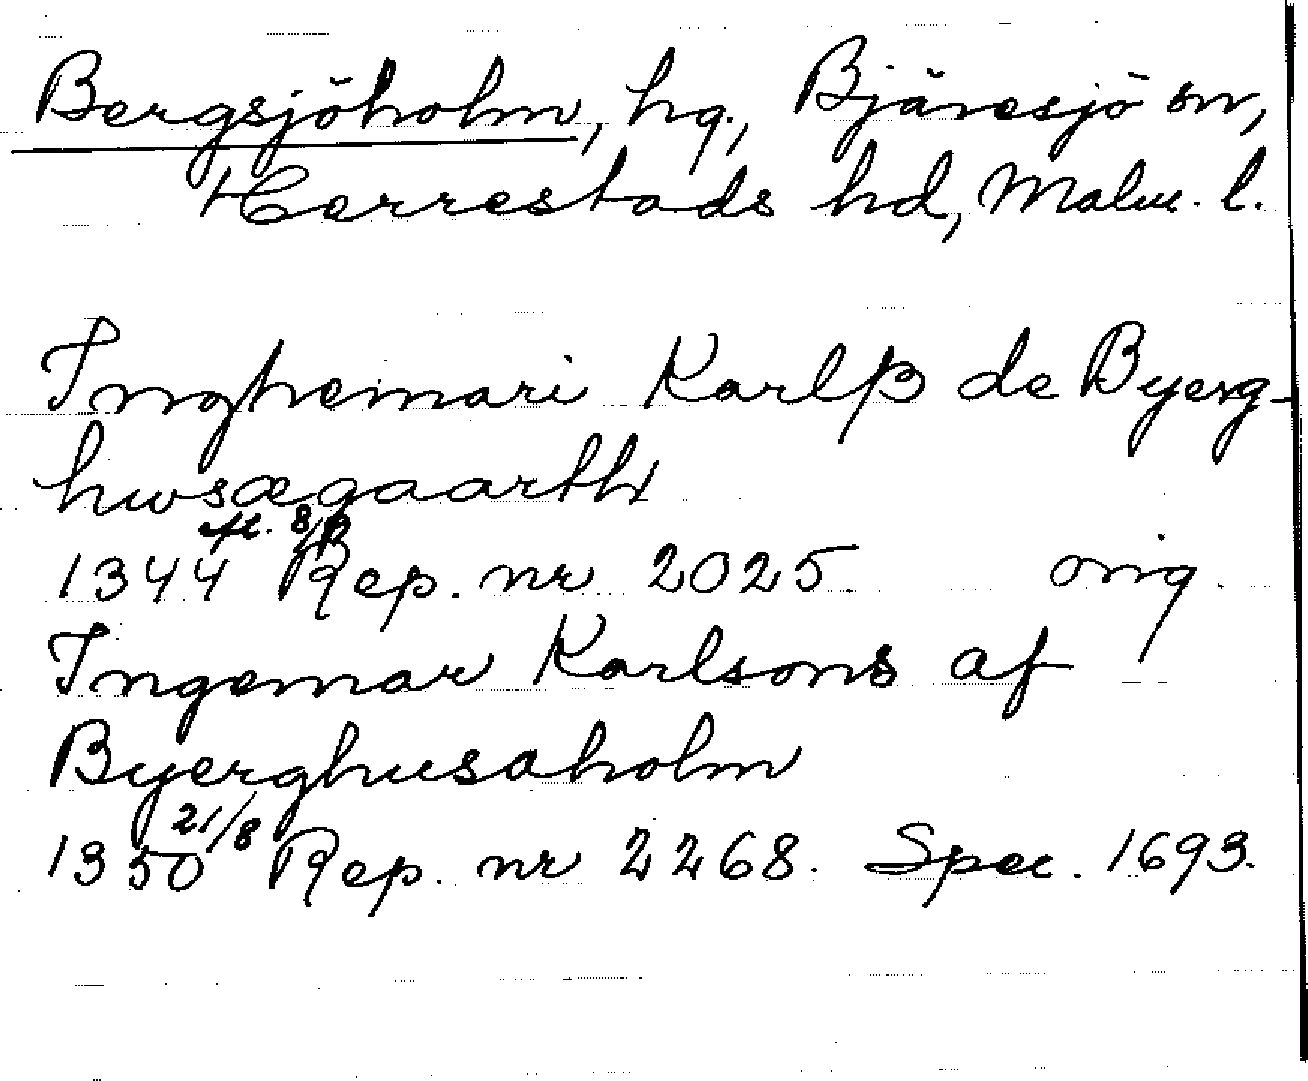 Bergsjöholm, hg., Bjäresjö sn,
Herrestads hd, Malm. l.
Inghemari Karlß de Byerg-
hwsægaarth
1344 eft. 8/9 Rep. nr 2025 orig.
Ingemar Karlsons af
Byerghusaholm
1350 21/8 Rep. nr 2268. Spec. 1693.